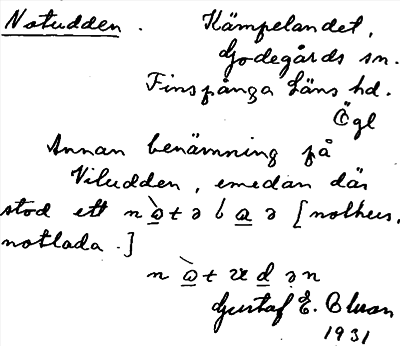 Notudden. Kämpelandet,
Godegårds sn.
Finspånga Läns hd.
Ögl
Annan benämning på
Viludden, emedan där
stod ett [nothus,
notlada.]
Gustaf E. 
1931